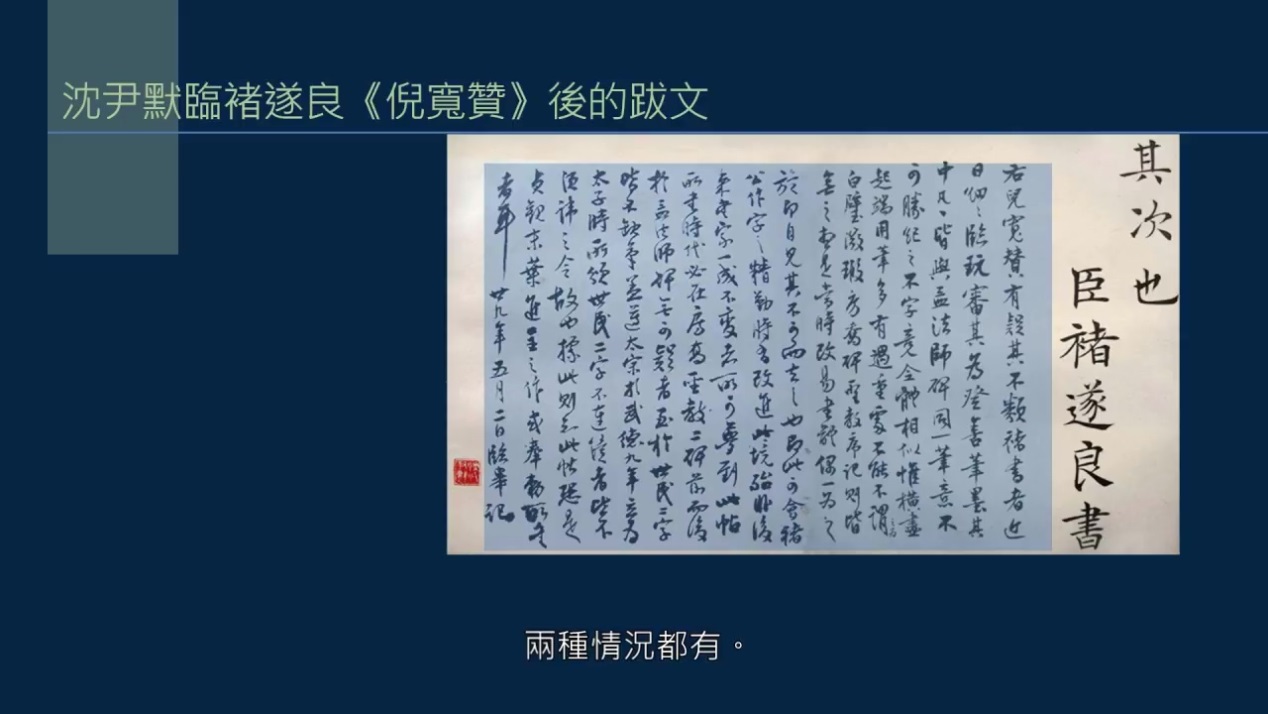 沈尹默臨褚遂良《倪寬贊》後的跋文
其次也
臣褚遂良書
右兒寬贊有疑其不類褚書者近
日細〻臨玩審其為登善筆墨其
中凡〻皆與孟法師碑同一筆意不
可勝紀之不字竟全體相似惟橫畫
起端用筆多有過重處不能不謂
白璧微瑕房喬碑聖教序記則皆
無之想是當時改易書體偶一為之
於即自見其不可而去之也即此可會褚
公作字之精勤時有改進此境殆非後
來書家一成不變者所可夢到此帖
所書時代必在房喬聖教二碑前而後
於孟法師碑無可疑者至於世民二字
皆不缺筆蓋遵太宗於武德九年立為
太子時所頒世民二字不連續者皆不
須諱之令故也據此則知此帖恐是
貞觀末葉進呈之作或奉敕所書
者耶 廿九年五月二日臨畢記
兩種情況都有。